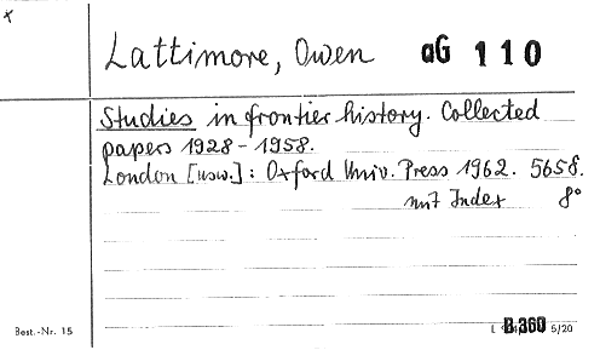 x
Lattimore, Owen aG 110
Studies in frontier history. Collected
papers 1928-1958.
London [usw.]: Oxford Univ. Press 1962. 565 S.
mit Index 8°
Best.-Nr. 15
B 360 5/20